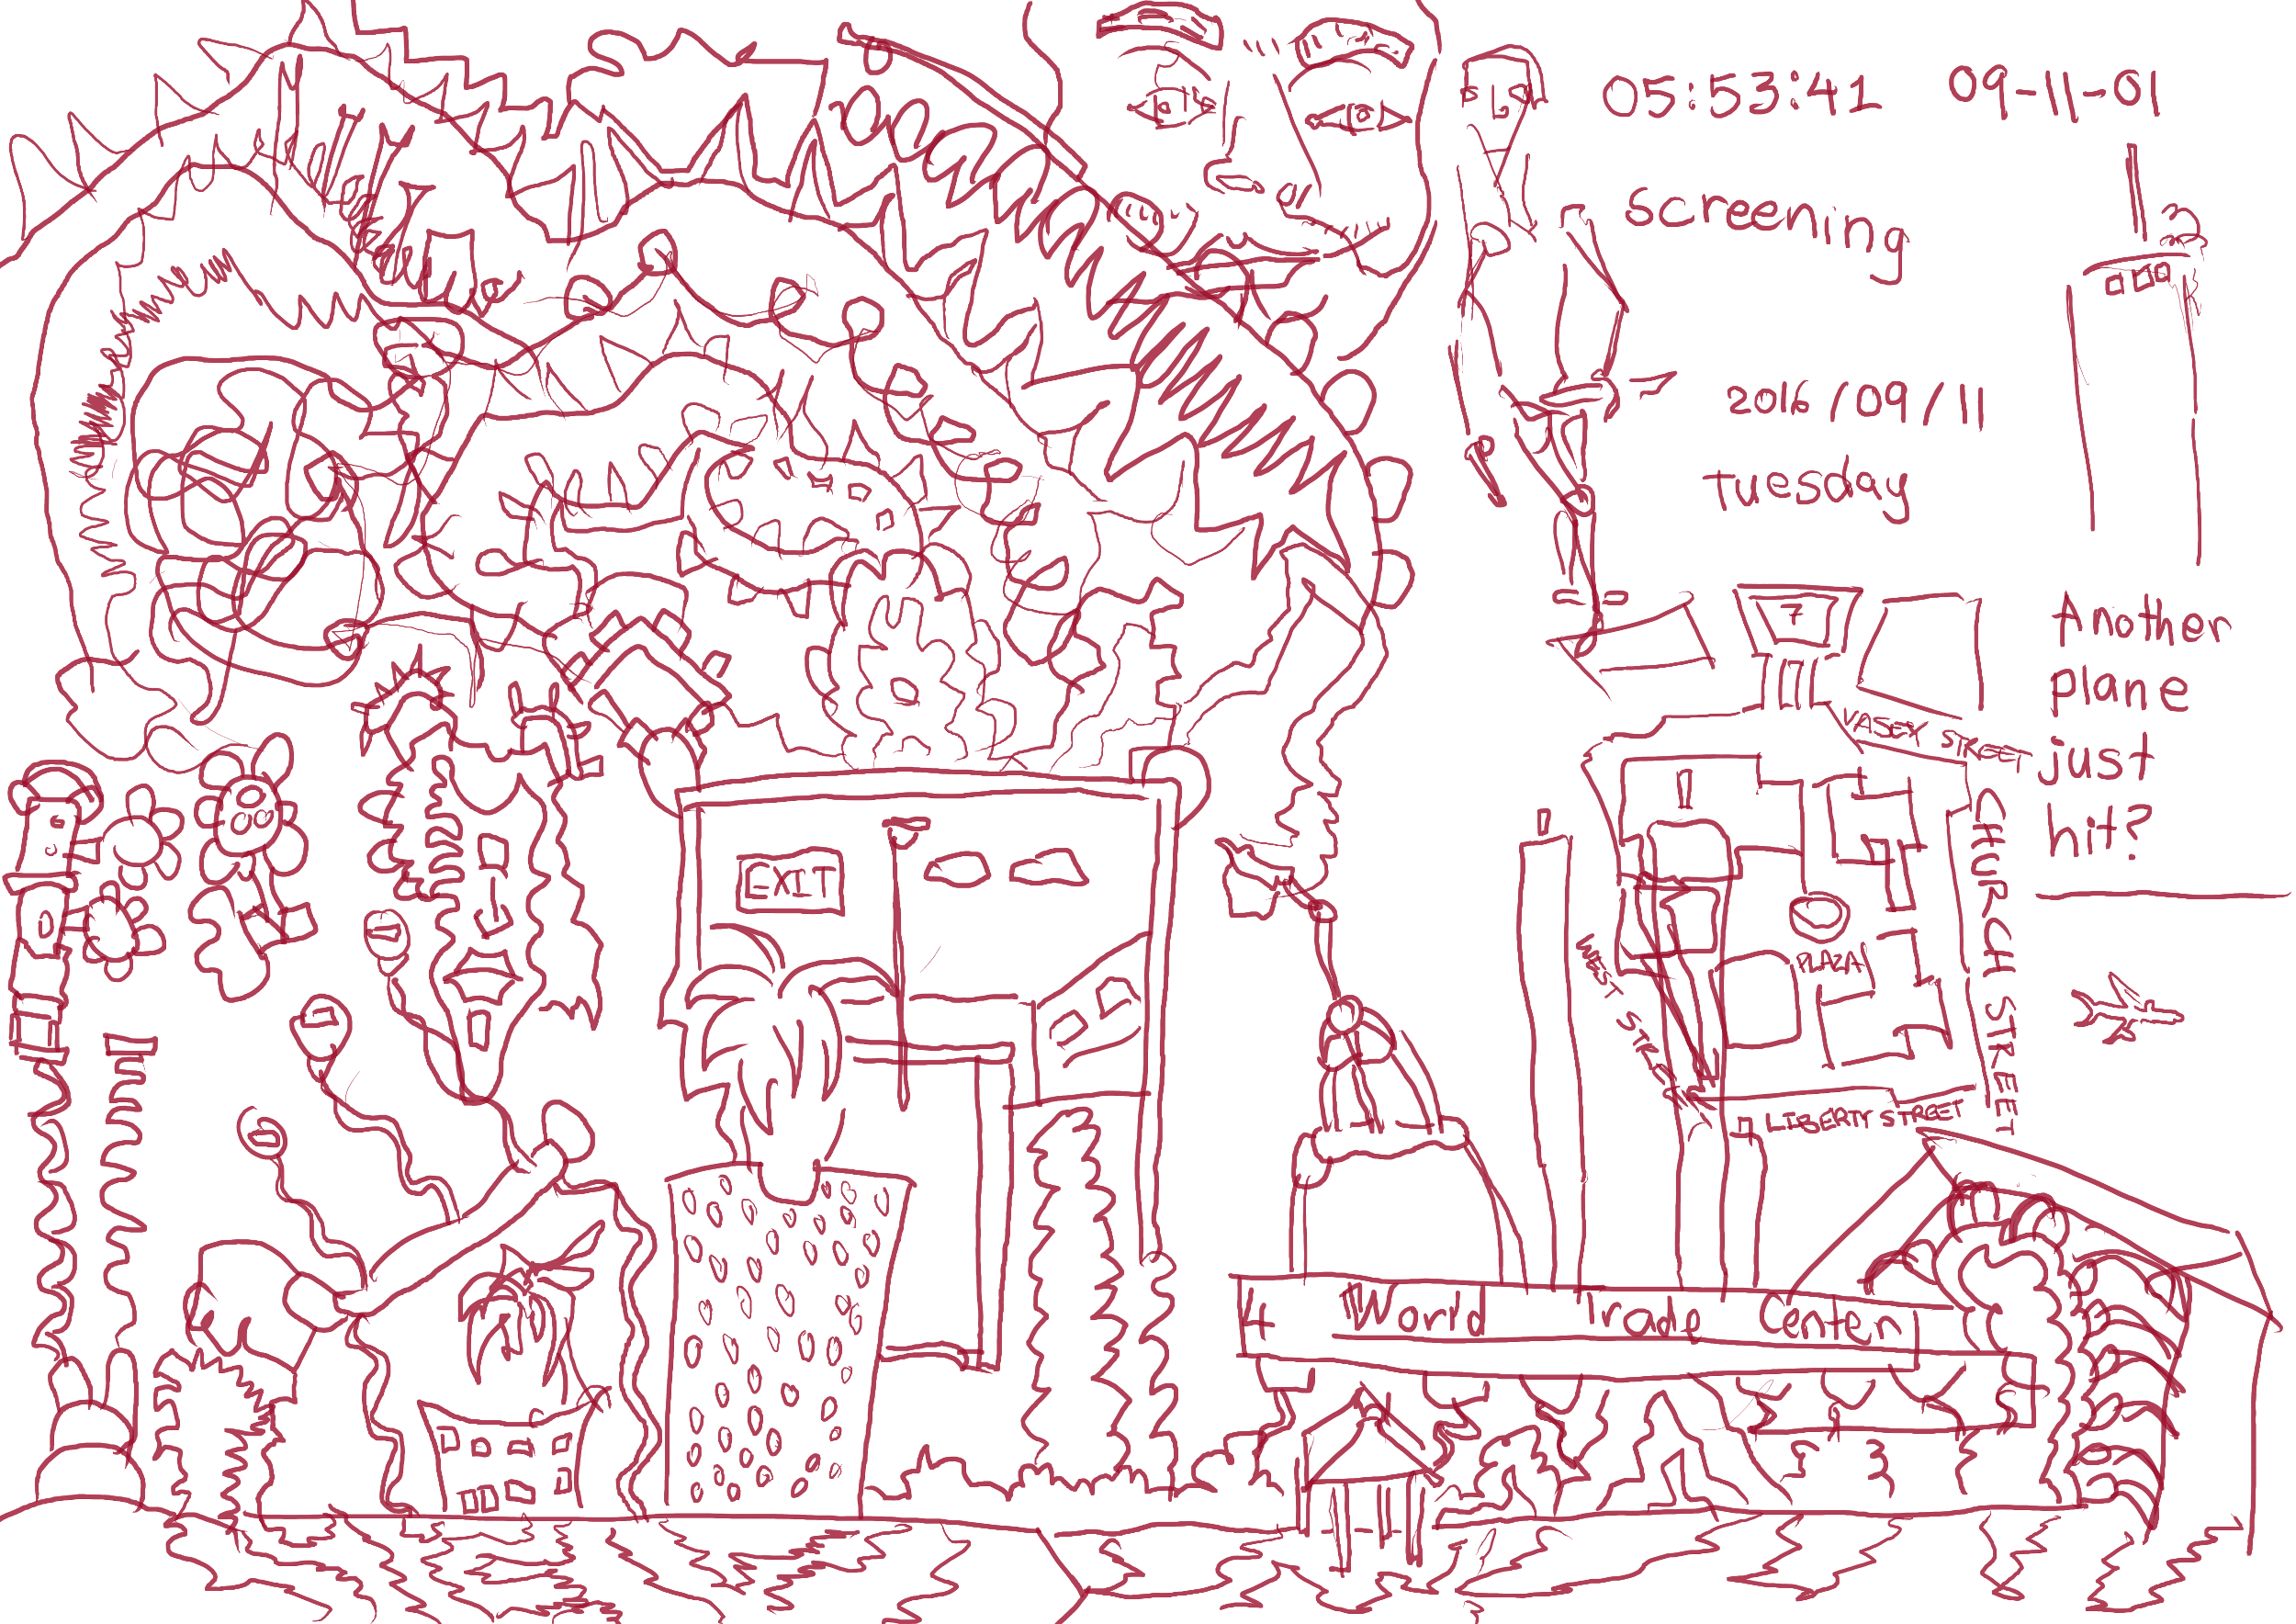 05:53:41 09-11-01
screening
2016/09/11
Tuesday
7
Another
plane
just
hit?
VASEY STREET
CHURCH STREET
WEST STREET
PLAZA
LIBERTY STREET
EXIT
4 World Trade Center